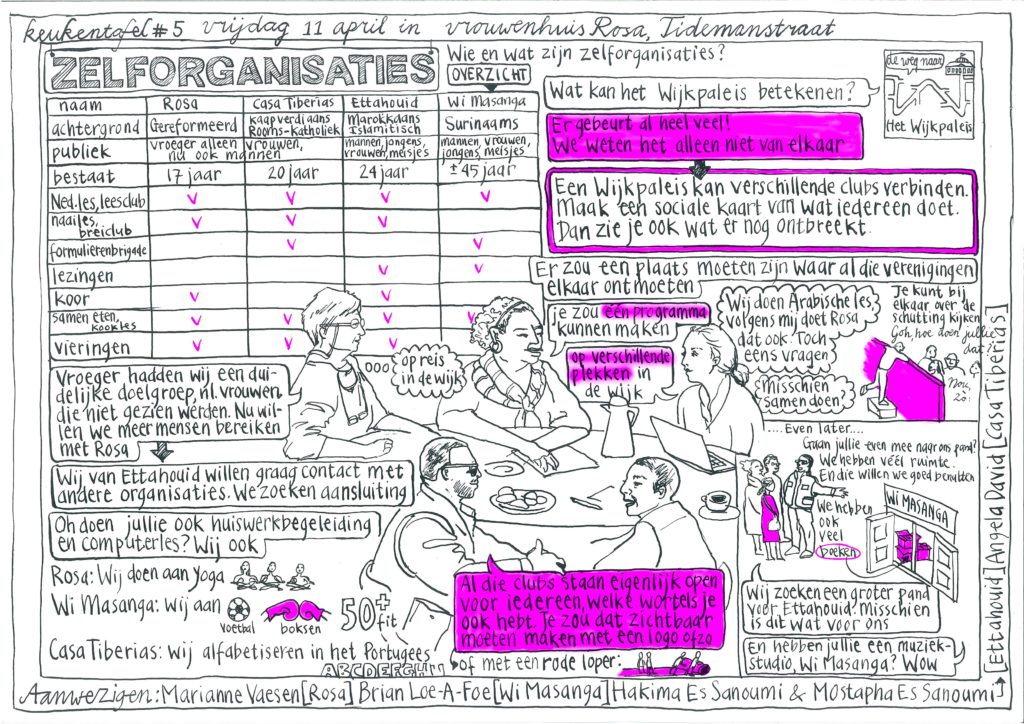 keukentafel #5 vrijdag 11 april in vrouwenhuis Rosa, Tidemanstraat
ZELFORGANISATIES
Wie en wat zijn zelforganisaties?
OVERZICHT
naam Rosa Casa Tiberias Ettahouid Wi Masanga
achtergrond Gereformeerd kaapverdiaans Rooms-katholiek Marokkaans Islamitisch Surinaams
publiek vroeger alleen vrouwen, nu ook mannen mannen, jongens, vrouwen, meisjes mannen, vrouwen, jongens, meisjes
bestaat 17 jaar 20 jaar 24 jaar ± 45 jaar
Ned. les, leesclub v v v v
naailes, breiclub v v v
formulierenbrigade v v
lezingen v v
koor v v
samen eten, kookles v v v v
vieringen v v v
Wat kan het Wijkpaleis betekenen?
de weg naar
Het Wijkpaleis
Er gebeurt al heel veel!
We weten het alleen niet van elkaar
Een Wijkpaleis kan verschillende clubs verbinden.
Maak een sociale kaart van wat iedereen doet.
Dan zie je ook wat er nog ontbreekt.
Er zou een plaats moeten zijn waar al die verenigingen
elkaar ontmoeten
je zou één programma
kunnen maken
op verschillende
plekken in
de wijk
op reis
in de wijk
Wij doen Arabische les
volgens mij doet Rosa
dat ook. Toch
eens vragen
misschien
samen doen?
Je kunt bij
elkaar over de
schutting kijken
Goh, hoe doen jullie
dat?
Nou,
zo!
Vroeger hadden wij een dui-
delijke doelgroep, nl. vrouwen
die niet gezien werden. Nu wil-
len we meer mensen bereiken
met Rosa
Wij van Ettahouid willen graag contact met
andere organisaties. We zoeken aansluiting
Oh doen jullie ook huiswerkbegeleiding
en computerles? Wij ook
Rosa: Wij doen aan yoga
Wi Masanga: wij aan
voetbal boksen
50+ fit
Casa Tiberias: wij alfabetiseren in het Portugees
ABCDEFGH
Al die clubs staan eigenlijk open
voor iedereen, welke wortels je
ook hebt. Je zou dat zichtbaar
moeten maken met een logo ofzo
of met een rode loper:
....Even later....
Gaan jullie even mee naar ons pand?
We hebben véél ruimte.
En die willen we goed benutten
We hebben
ook
veel
boeken
WI MASANGA
Wij zoeken een groter pand
voor Ettahouid. Misschien
is dit wat voor ons
En hebben jullie een muziek-
studio, Wi Masanga? Wow
Aanwezigen: Marianne Vaesen [Rosa] Brian Loe-A-Foe [Wi Masanga] Hakima Es Sanoumi & Mostapha Es Sanoumi
[Ettahouid] Angela David [Casa Tiberias]